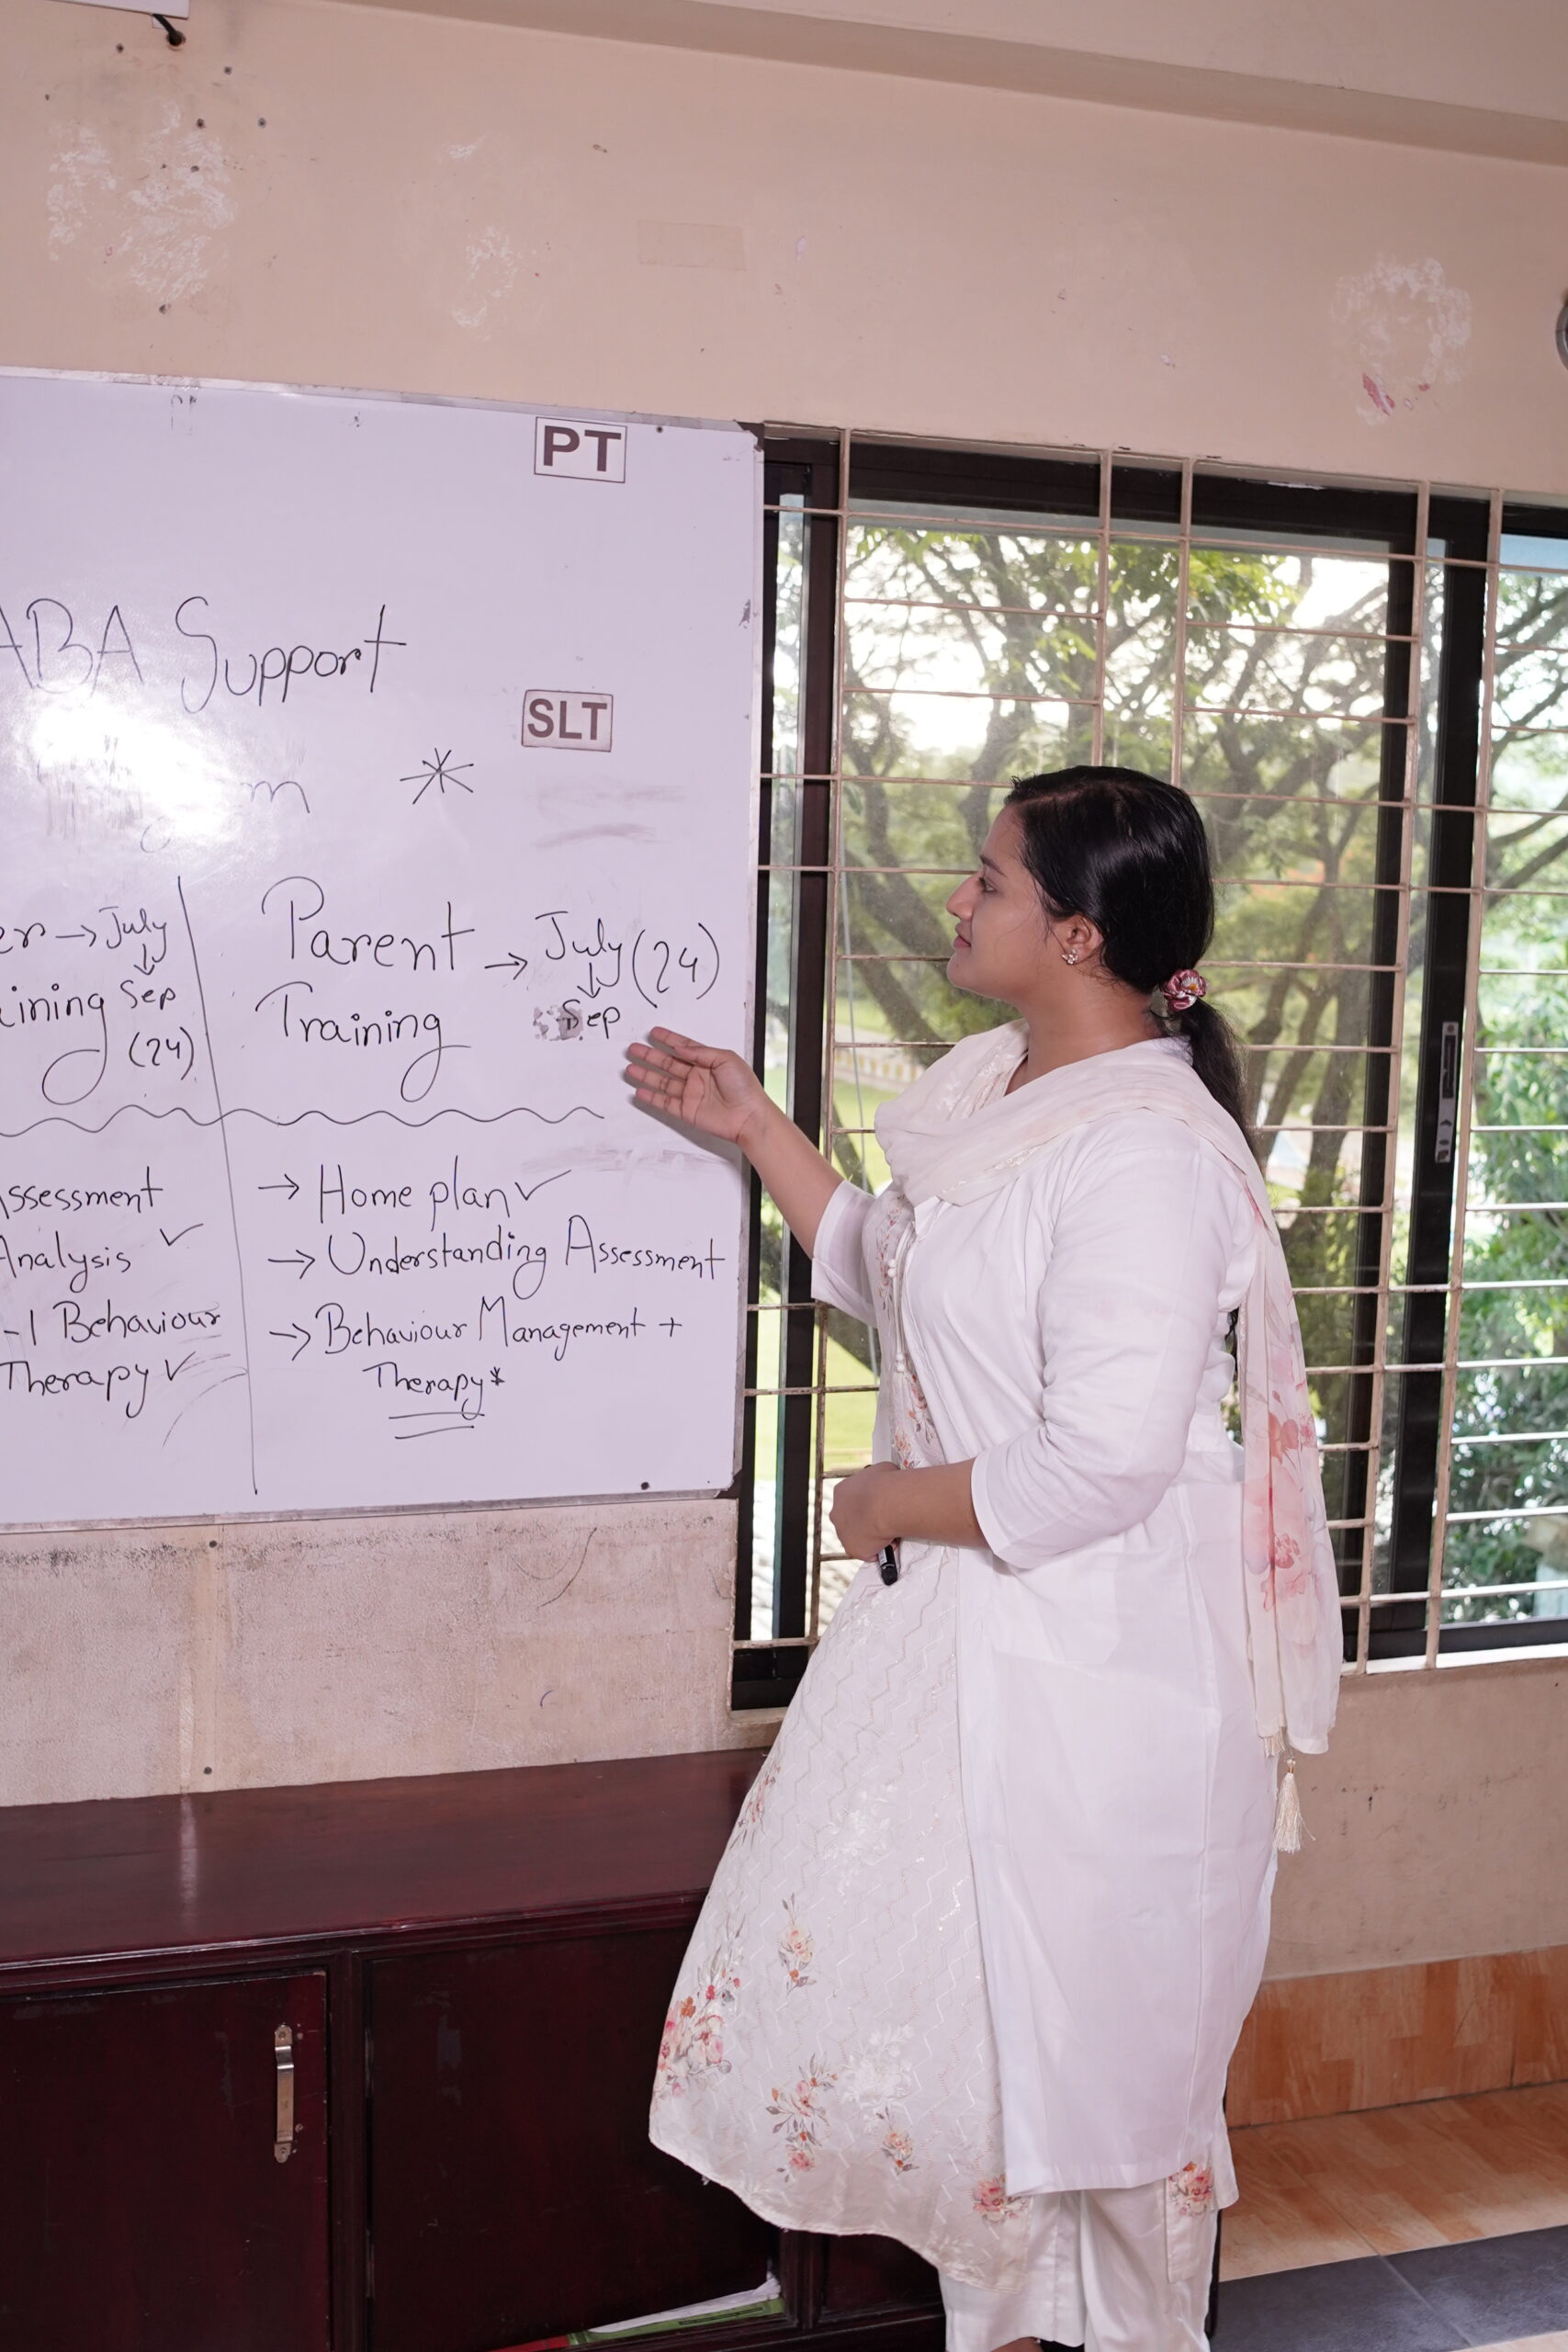 PT
ABA Support
SLT
m *
er → July
↓
ining Sep
(24)
Parent → July (24)
↓
Training Sep
Assessment
Analysis ✓
-1 Behaviour
Therapy ✓
→ Home plan ✓
→ Understanding Assessment
→ Behaviour Management +
Therapy*